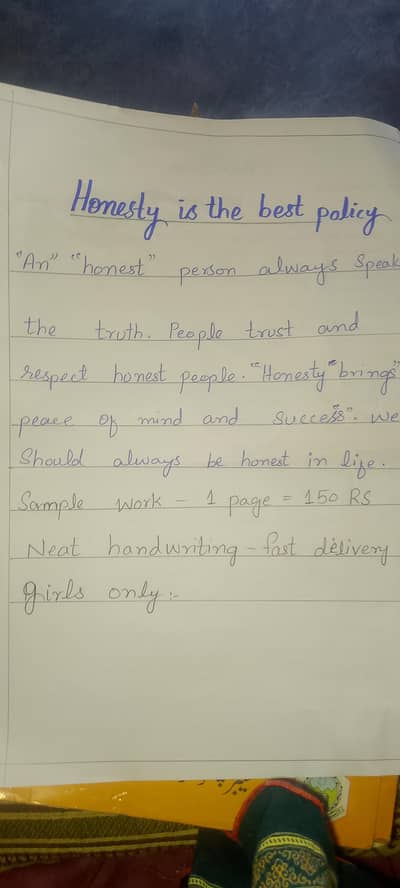 Honesty is the best policy
"An" "honest" person always Speak
the truth. People trust and
respect honest people. "Honesty" brings"
peace of mind and success". we
Should always be honest in life.
Sample work - 1 page = 150 RS
Neat handwriting - fast delivery
girls only :-